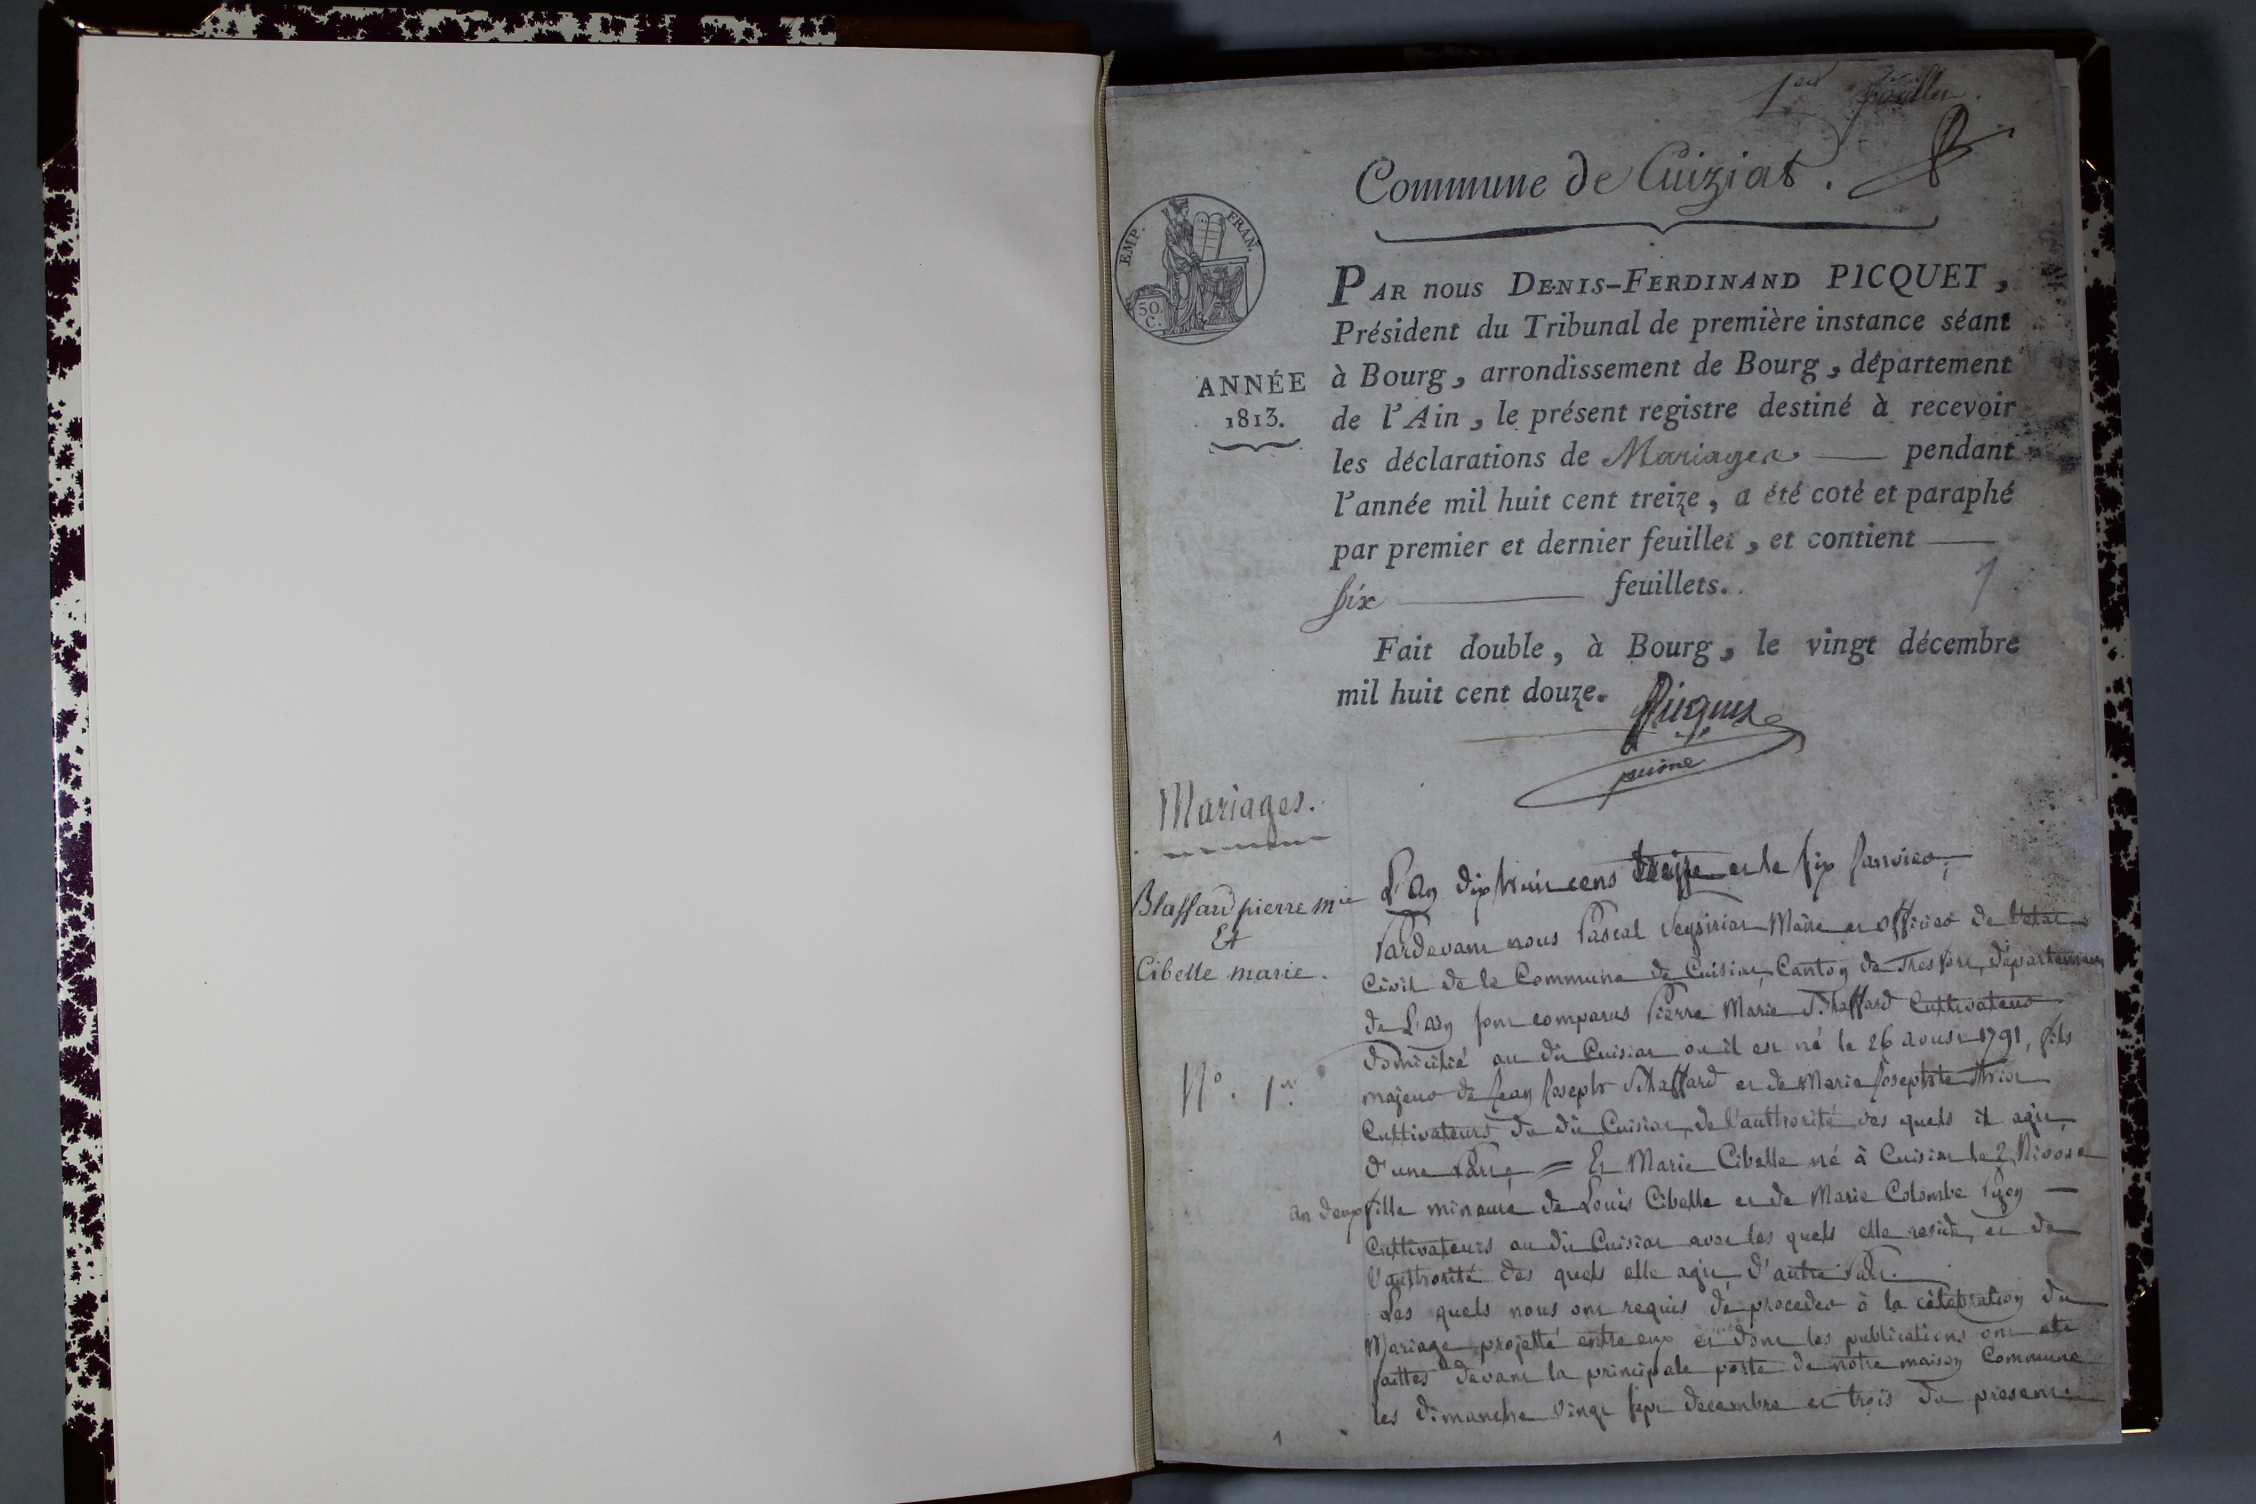 1er feuillet.
Commune de Cuiziat.
EMP. FRAN.
50.
C.
PAR nous DENIS-FERDINAND PICQUET,
Président du Tribunal de première instance séant
à Bourg, arrondissement de Bourg, département
ANNÉE
1813.
de l'Ain, le présent registre destiné à recevoir
les déclarations de Mariages pendant
l'année mil huit cent treize, a été coté et paraphé
par premier et dernier feuillet, et contient
six feuillets.
1
Fait double, à Bourg, le vingt décembre
mil huit cent douze.
Picquet
puiné
Mariages.
Blaffard pierre mie
Et
Cibelle marie.
N°. 1er
L'an dix huit cent treize et le six Janvier,
Pardevant nous Pascal Maire et officier de l'état
Civil de la Commune de Cuisiat, Canton de Treffort, département
de L'ain sont comparus Pierre Marie Cultivateur
domicilié au dit Cuisiat ou il est né le 26 aoust 1791, fils
majeur de Jean Joseph et de Marie Josephte
Cultivateurs du dit Cuisiat, de l'authorité des quels il agit,
d'une part, = Et Marie Cibelle né à Cuisiat le 2 Nivose
an deux fille mineure de Louis Cibelle et de Marie Colombe
Cultivateurs au dit Cuisiat avec les quels elle reside, et de
l'authorité des quels elle agit, d'autre part.
Les quels nous ont requis de proceder à la célébration du
Mariage projetté entre eux et dont les publications ont eté
faittes devant la principale porte de notre maison Commune
les dimanche vingt sept decembre et trois du present
1